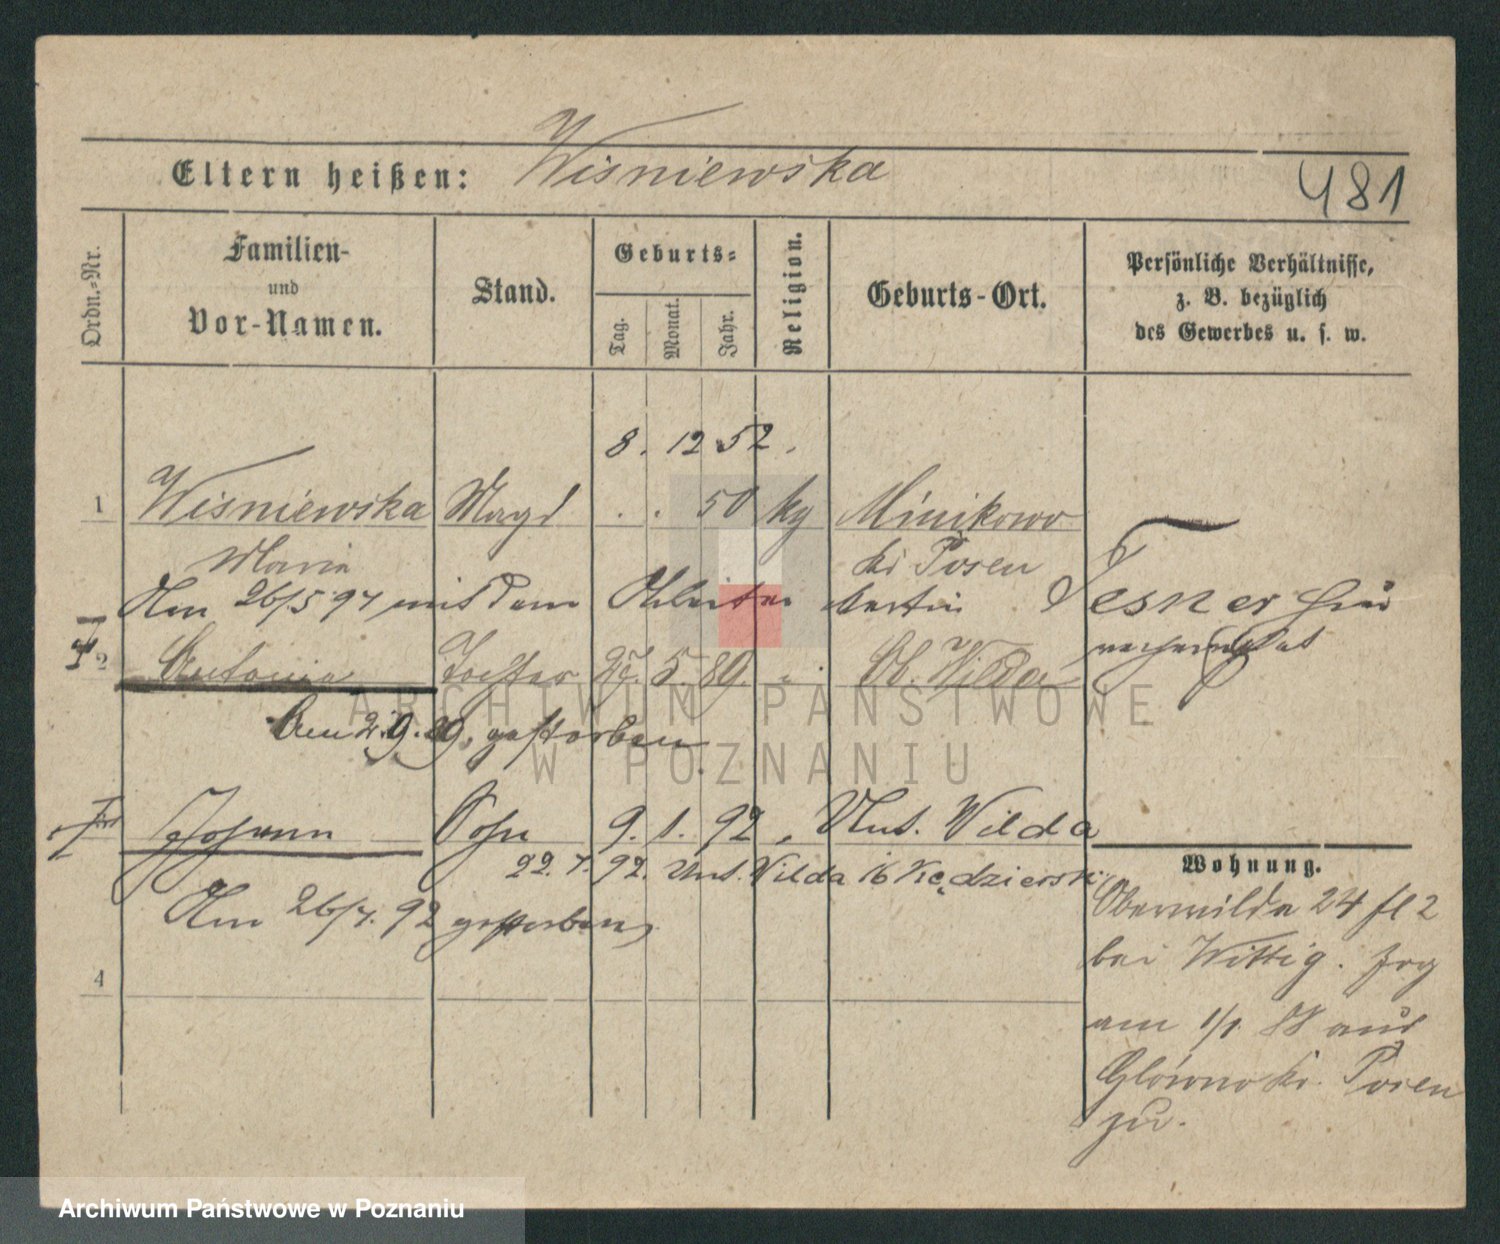 Eltern heißen: Wisniewska
481
Ordn.-Nr.
Familien- und Vor-Namen.
Stand.
Geburts-
Tag.
Monat.
Jahr.
Religion.
Geburts-Ort.
Persönliche Verhältnisse, z. B. bezüglich des Gewerbes u. s. w.
8. 12 52.
1 Wisniewska Magd . . 50 kg Minikowo
Maria Kr Posen
Am 26/5 97 mit dem Arbeiter Martin Tesner hier
verheirathet
† 2 Antonia Tochter 27. 5. 89. " Ob. Wilda
Am 2.9.89. gestorben
† Johann Sohn 9. 1. 92. Unt. Wilda
22. 7. 92. Unt. Wilda 16 Kędzierski
Am 26/7. 92 gestorben
4
Wohnung.
Oberwilda 24
bei Wittig. Zog
am 1/1. 88 aus
Glówno Kr. Posen
zu.
ARCHIWUM PAŃSTWOWE
W POZNANIU
Archiwum Państwowe w Poznaniu